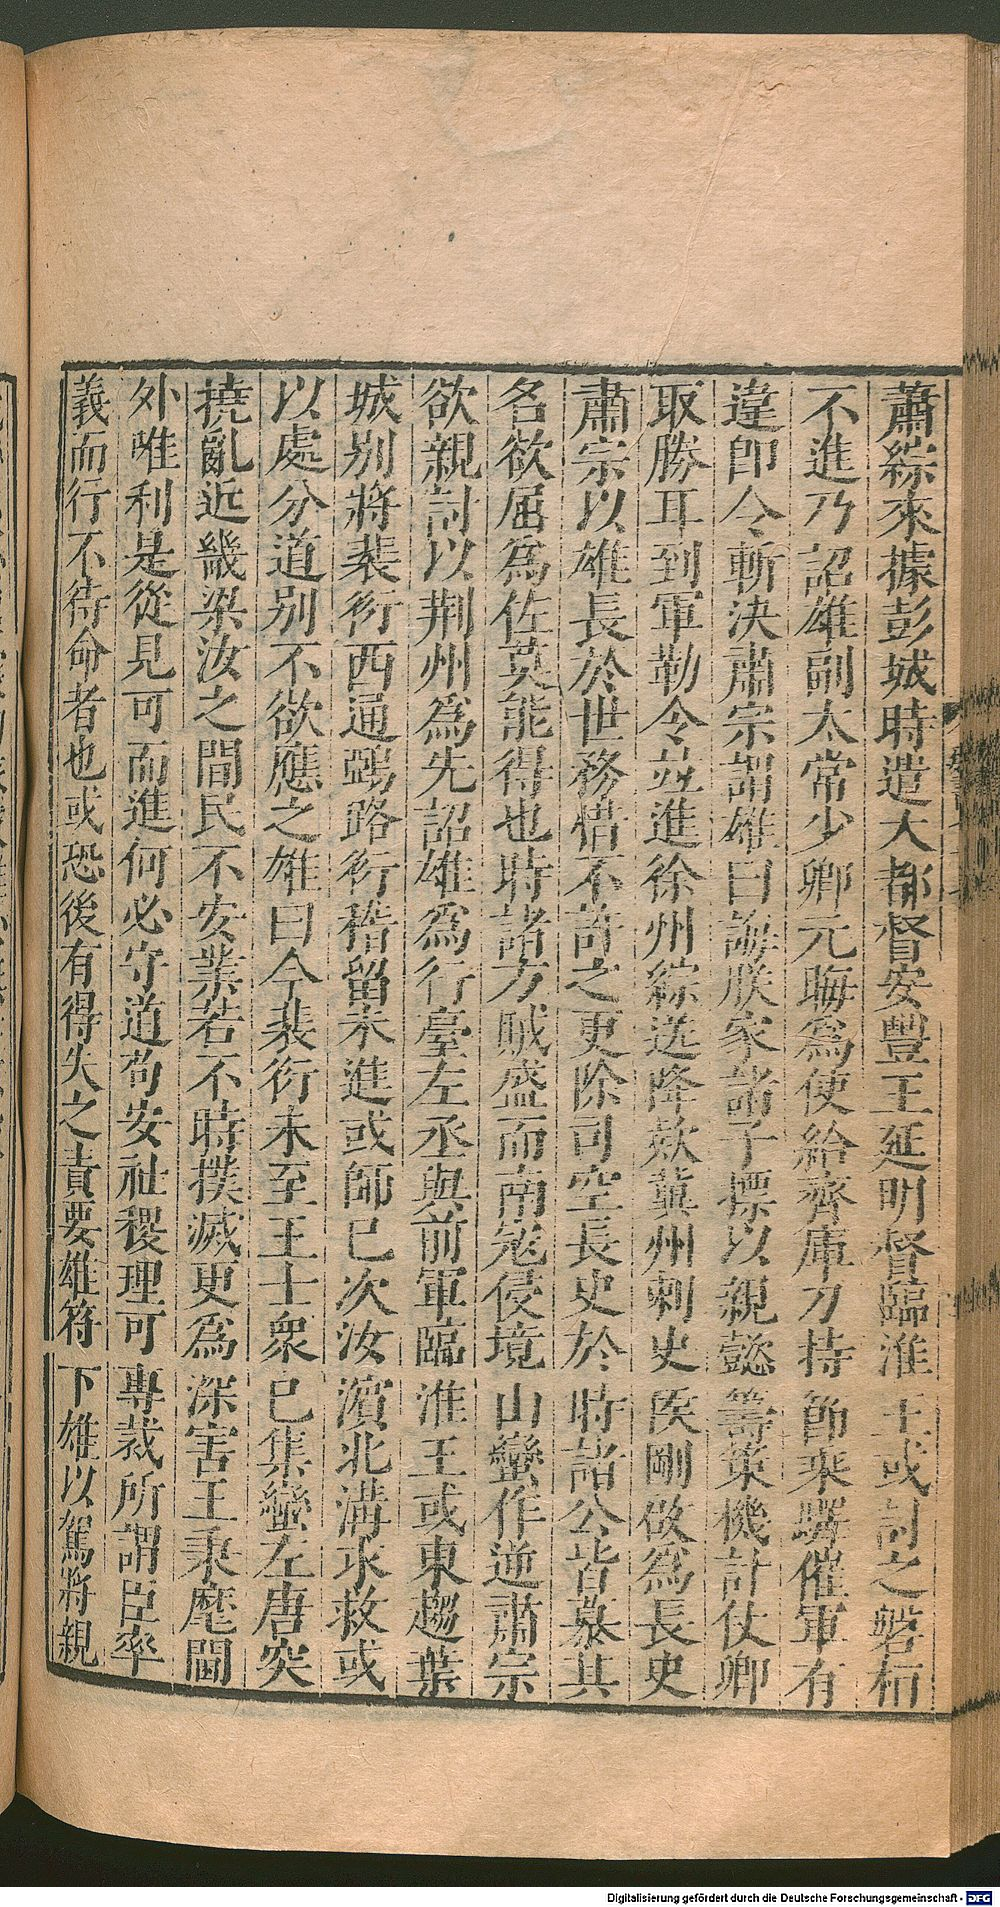 蕭綜來據彭城時遣大都督安豐王延明督臨淮王彧討之盤桓
不進乃詔雄副太常少卿元誨爲使給齊庫刀持節乘驛催軍有
違即令斬決肅宗謂雄曰誨朕家諸子摽以親懿籌策機計仗卿
取勝耳到軍勒令並進徐州綜送降欵冀州刺史侯剛啟爲長史
肅宗以雄長於世務惜不許之更除司空長史於時諸公皆慕其
名欲屈爲佐莫能得也時諸方賊盛而南寇侵境山蠻作逆肅宗
欲親討以荆州爲先詔雄爲行臺左丞與前軍臨淮王彧東趨葉
城別將裴衍西通鵶路衍稽留未進彧師已次汝濱北溝求救彧
以處分道別不欲應之雄曰今裴衍未至王士衆已集蠻左唐突
撓亂近畿梁汝之間民不安業若不時撲滅更爲深害王秉麾閫
外唯利是從見可而進何必守道苟安社稷理可專裁所謂臣率
義而行不待命者也彧恐後有得失之責要雄符下雄以駕將親
Digitalisierung gefördert durch die Deutsche Forschungsgemeinschaft - DFG